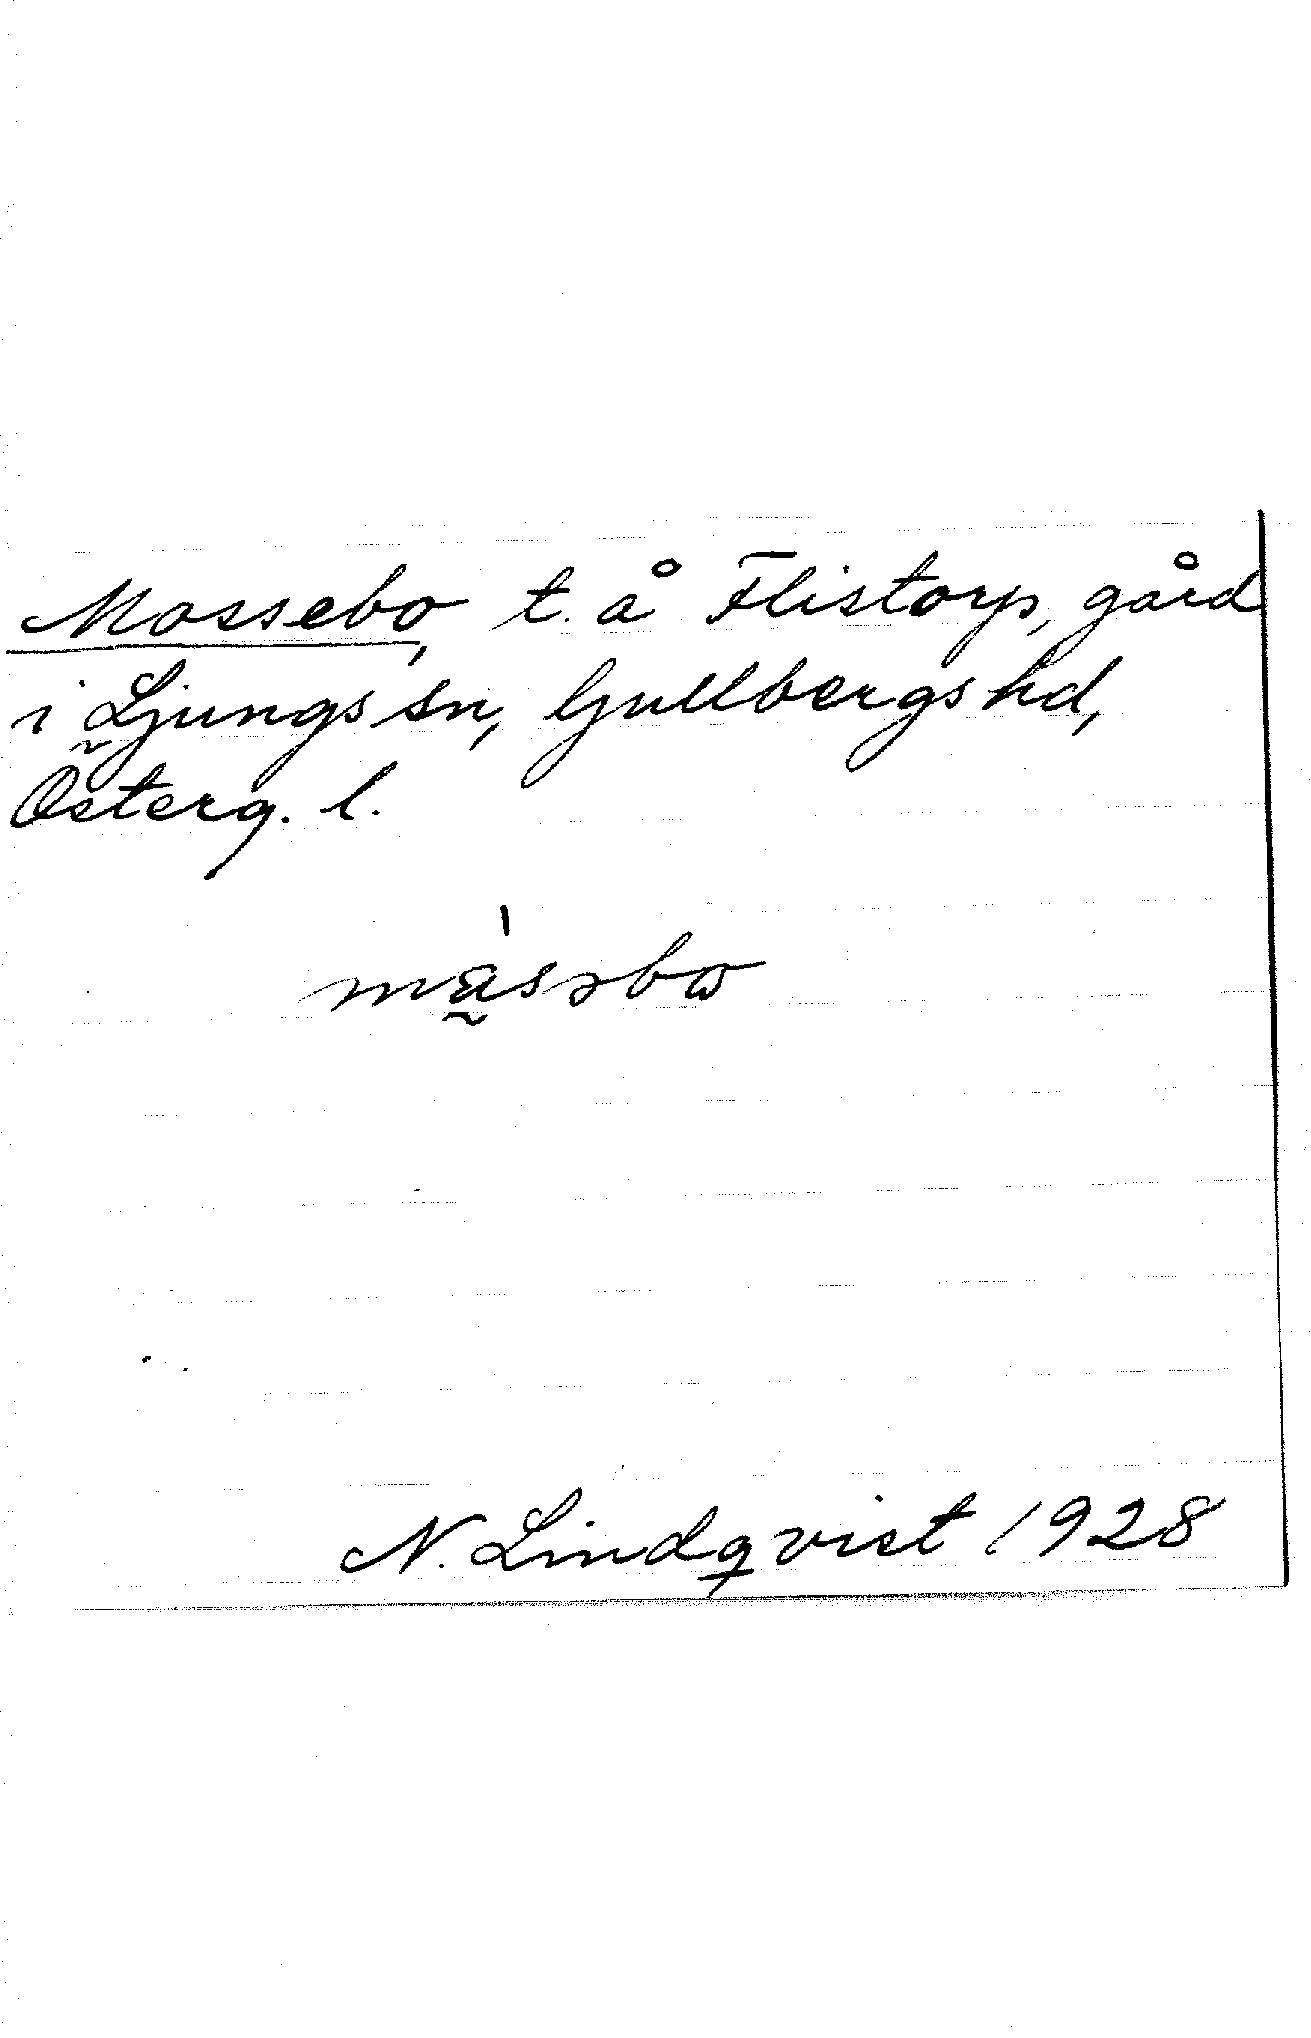 Mossebo, t. å Flistorp, gård
i Ljungs sn, Gullbergs hd,
Österg. l.
måssbo
N. Lindqvist 1928